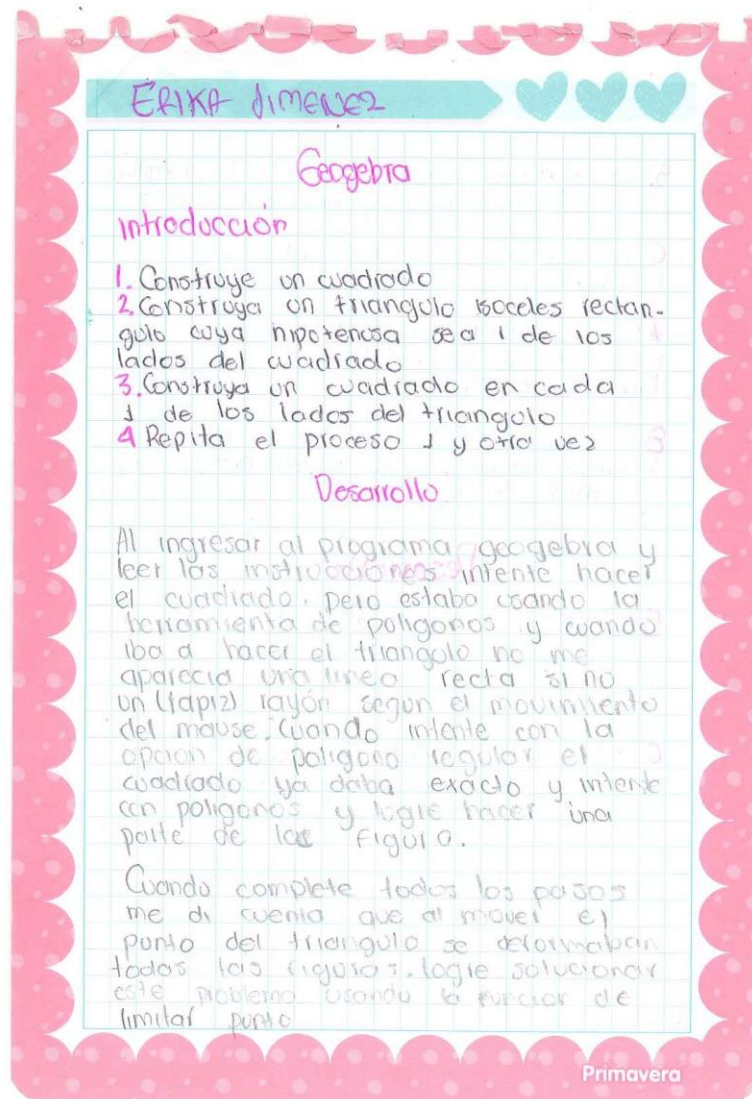 ERIKA JIMENEZ
Geogebra
introducción
1. Construye un cuadrado
2. Construya un triangulo isoceles rectan-
gulo cuya hipotenosa sea 1 de los
lados del cuadrado
3. Construya un cuadrado en cada
1 de los lados del triangulo
4 Repita el proceso 1 y otra vez
Desarrollo
Al ingresar al programa geogebra y
leer las instrucciones intente hacer
el cuadrado. pero estaba usando la
herramienta de poligonos y cuando
iba a hacer el triangulo no me
aparecia una linea recta si no
un (lapiz) rayón segun el movimiento
del mouse. Cuando intente con la
opcion de poligono regular el
cuadrado ya daba exacto y intente
con poligonos y logre hacer una
parte de la figura.
Cuando complete todos los pasos
me di cuenta que al mover el
punto del triangulo se deformaban
todas las figuras. logre solucionar
este problema usando la funcion de
limitar punto
Primavera